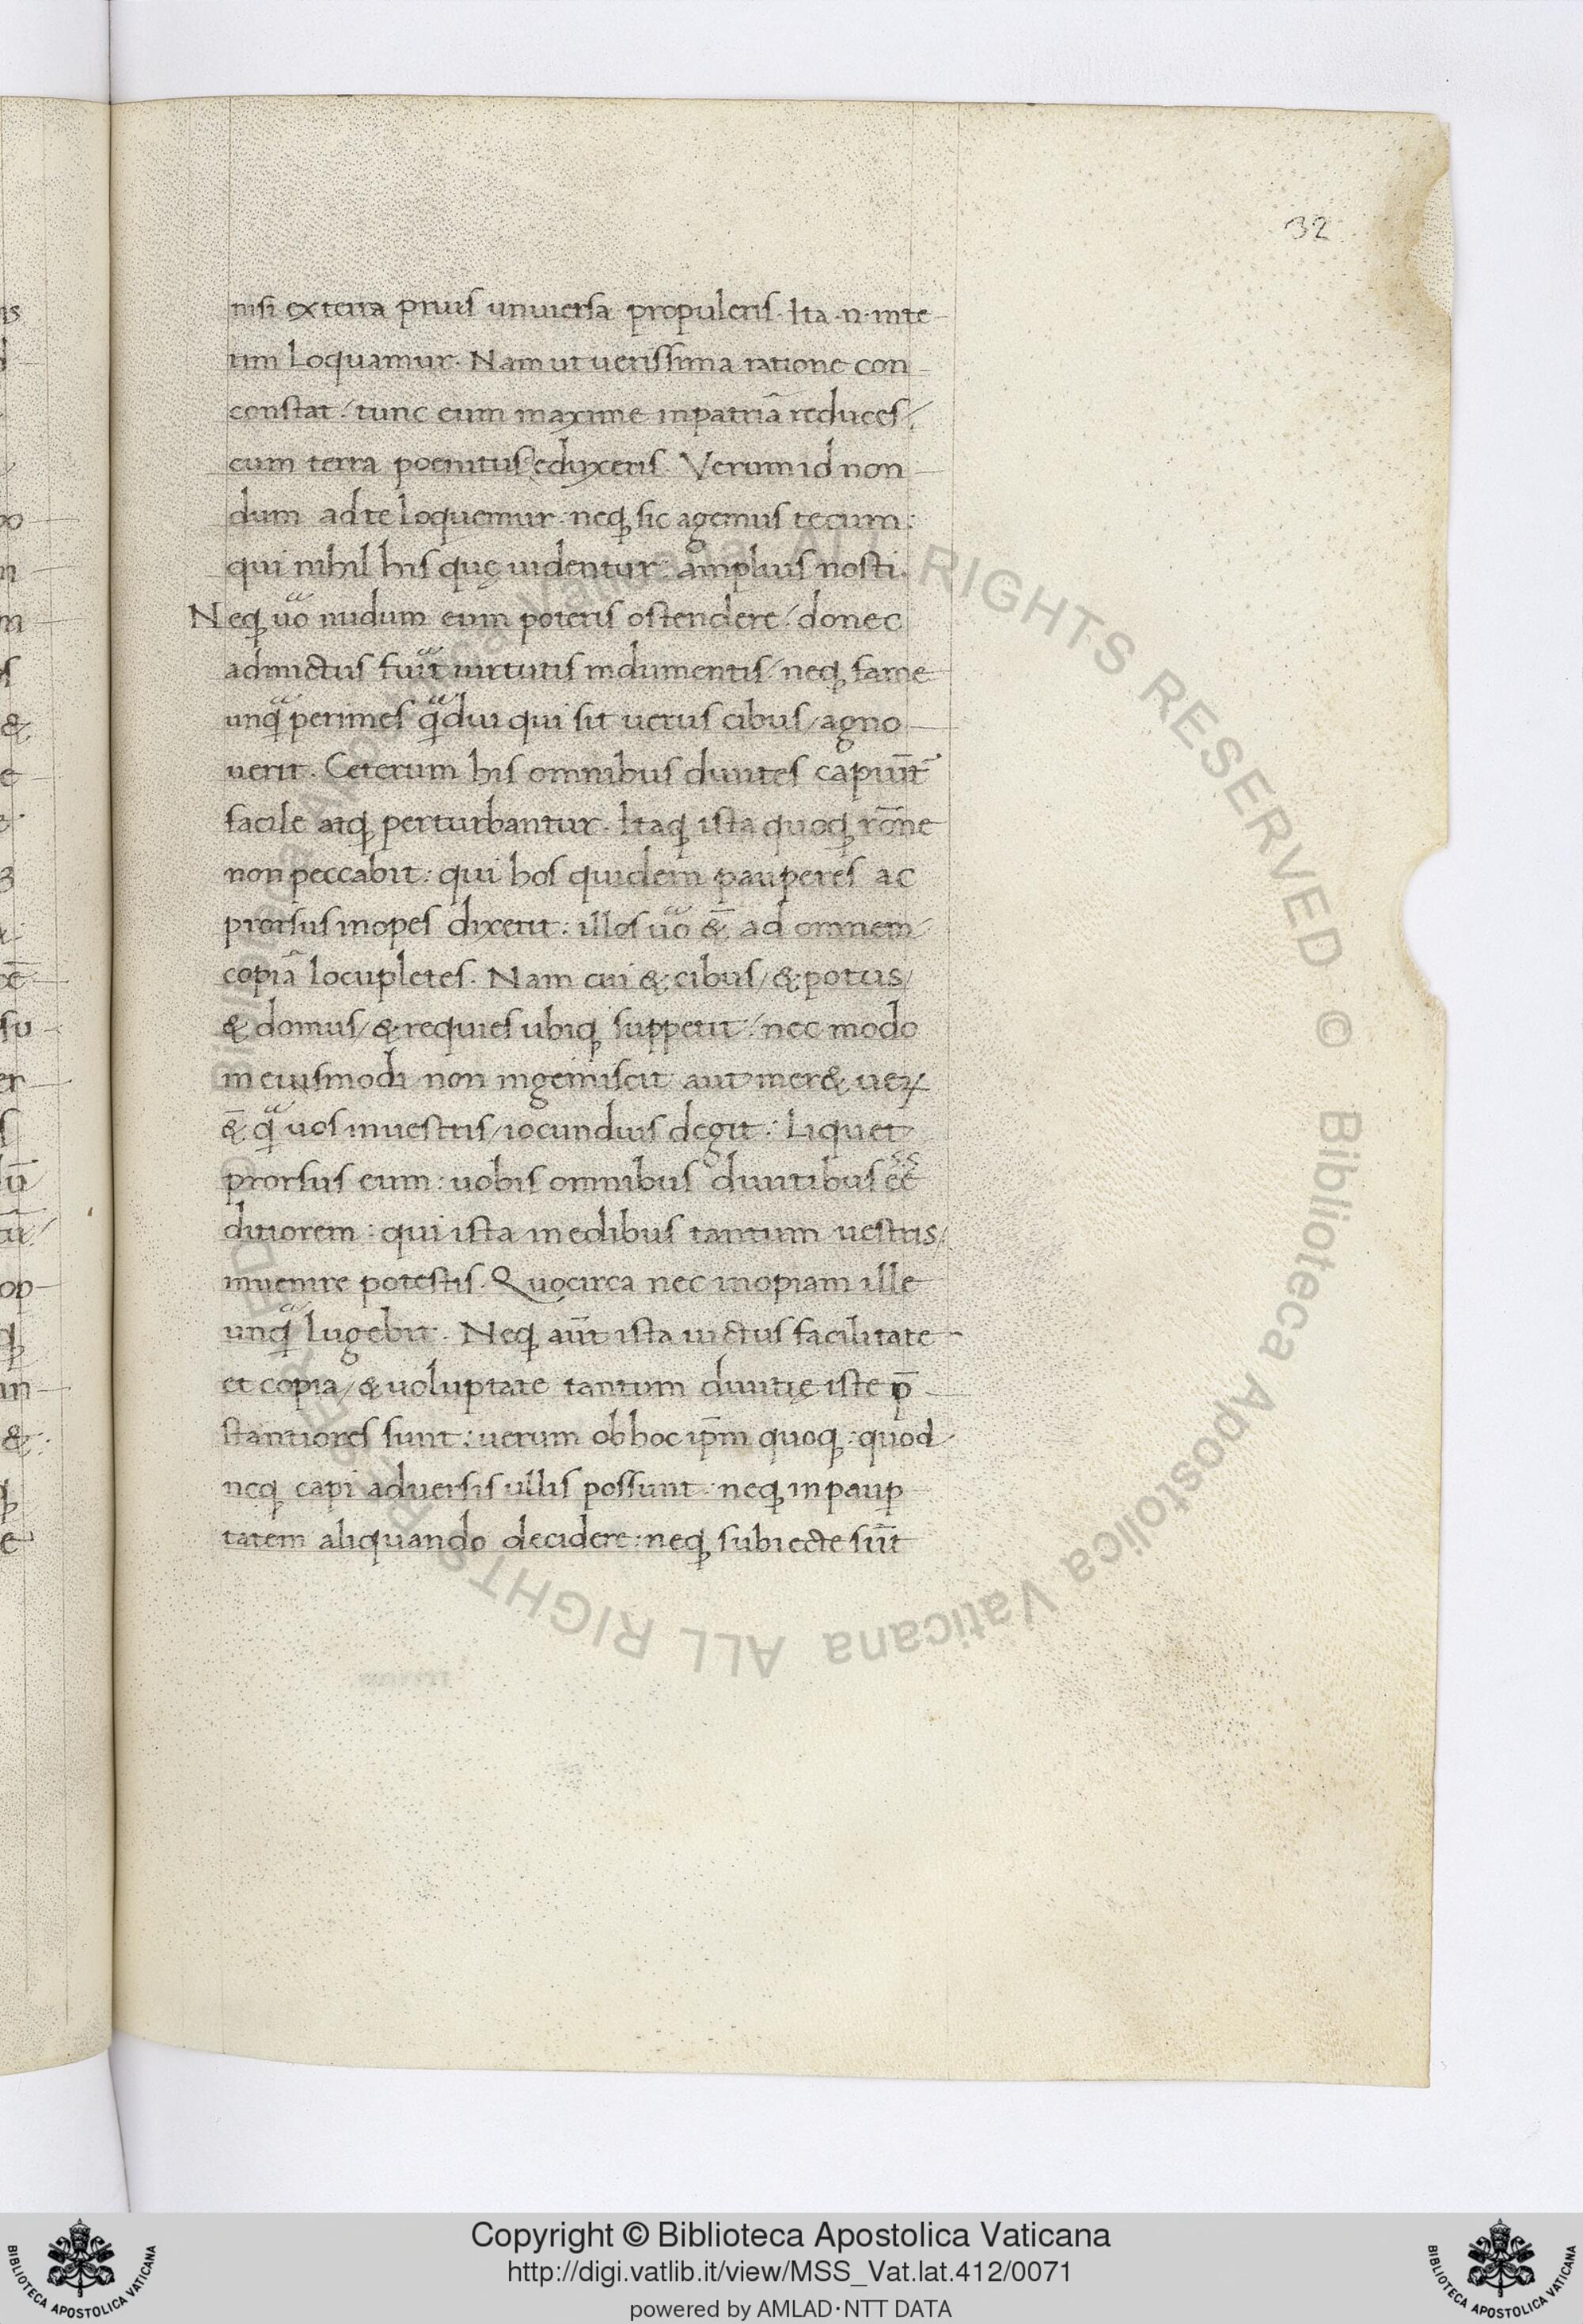 32
nisi ex terra prius universa propuleris. Ita .n. inte
rim loquamur. Nam ut uerissima ratione con
constat / tunc eum maxime inpatriā reduces /
cum terra poenitus eduxeris. Verum id non
dum ad te loquemur. neq̨ sic agemus tecum:
qui nihil his quę uidentur: amplius nosti.
Neq̨ uo nudum eum poteris ostendere / donec
admictus fuit uirtutis indumentis / neq̨ fame
unq̃ perimes q̃diu qui sit uerus cibus / agno
uerit. Ceterum his omnibus diuites capiūt
facile atq̨ perturbantur. Itaq̨ ista quoq̨ rōne
non peccabit: qui hos quidem pauperes ac
prorsus inopes dixerit: illos uo &̄ ad omnem
copiā locupletes. Nam cui & cibus / & potus /
& domus / & requies ubiq̨ suppetit / nec modo
in eiusmodi non ingemiscit aut mer& ueꝝ
&̄ q̃ uos inuestris / iocundius degit: Liquet
prorsus eum: uobis omnibus diuitibus eē
ditiorem: qui ista in edibus tantum uestris /
inuenire potestis. Quocirca nec inopiam ille
unq̃ lugebit. Neq̨ aūt ista uictus facilitate
et copia / & uoluptate tantum diuitię iste p̄
stantiores sunt: uerum ob hoc ip̄m quoq̨: quod
neq̨ capi aduersis ullis possunt. neq̨ in paup̱
tatem aliquando decidere: neq̨ subiecte sūt
ALL RIGHTS RESERVED © Biblioteca Apostolica Vaticana ALL RIGHTS
Copyright © Biblioteca Apostolica Vaticana
http://digi.vatlib.it/view/MSS_Vat.lat.412/0071
powered by AMLAD·NTT DATA
BIBLIOTECA APOSTOLICA VATICANA
BIBLIOTECA APOSTOLICA VATICANA